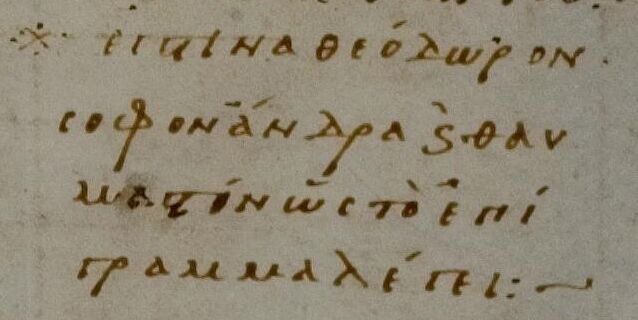 ※ εις τινα θεόδωρον·
σοφον ἄνδρα ϗ θαυ
μαστόν ὡς τὸ ἐπί
γραμμα λέγει:~